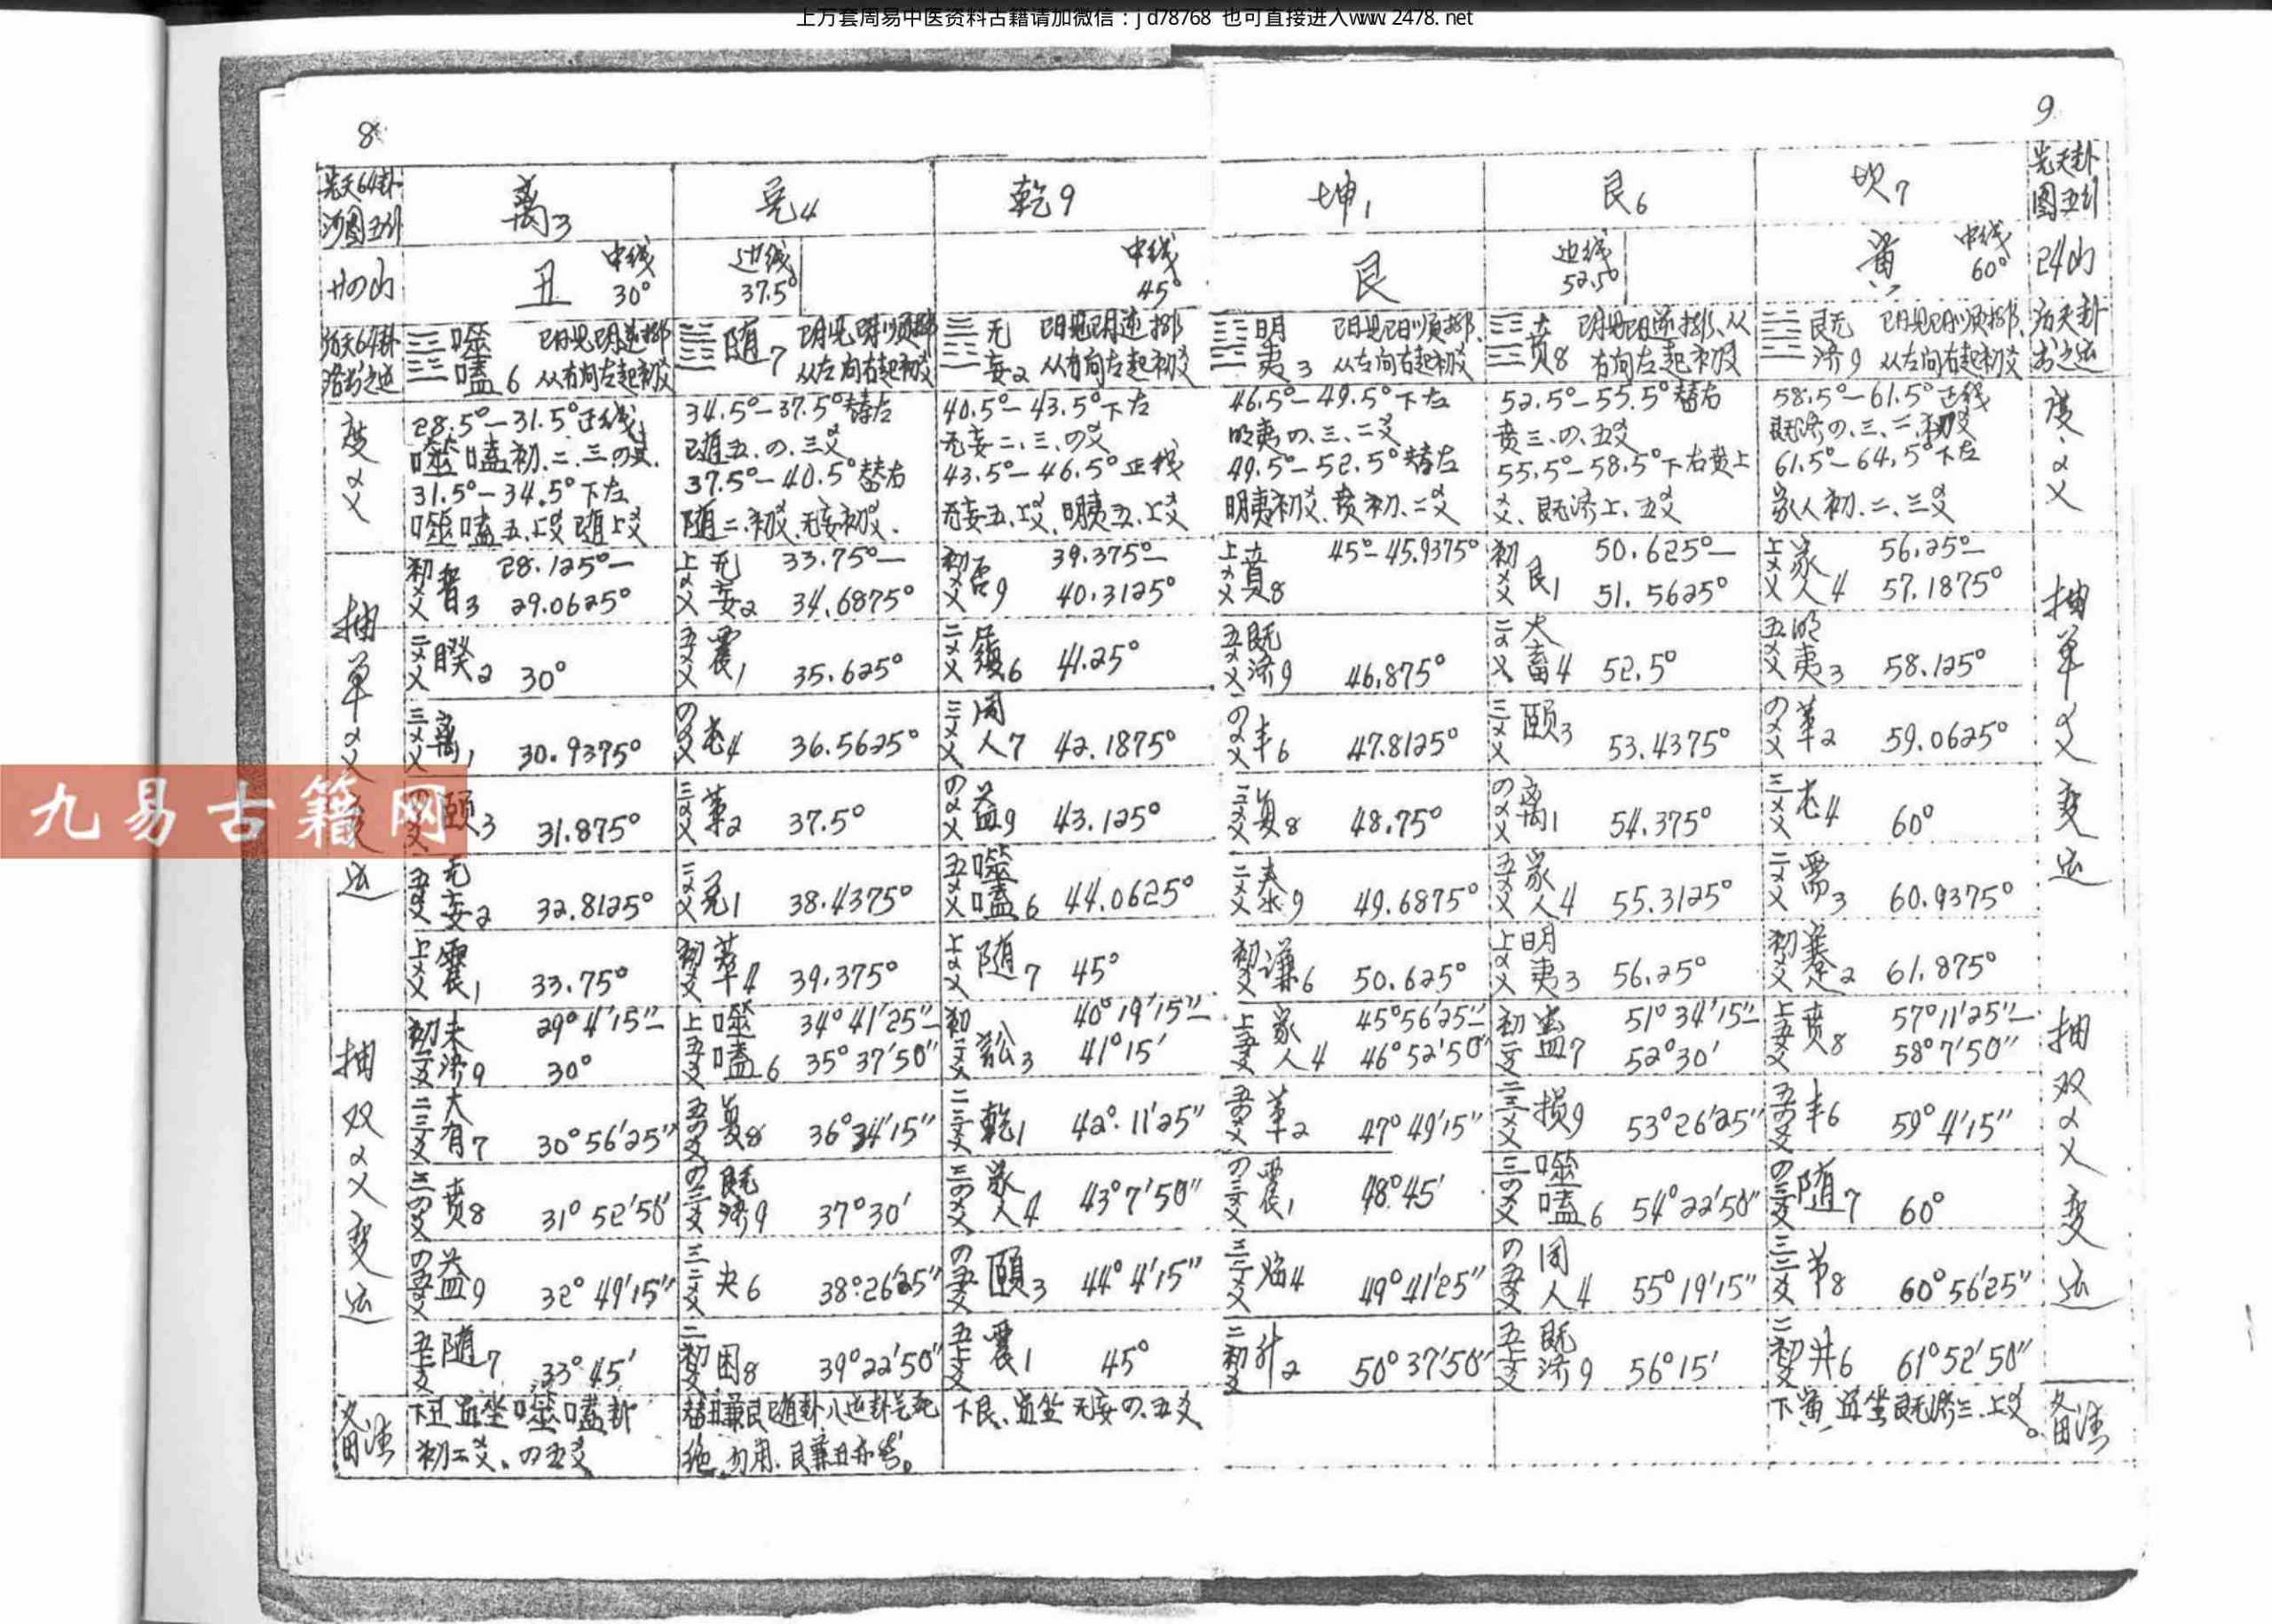 上万套周易中医资料古籍请加微信：jd78768 也可直接进入www.2478.net
8
9
先天64卦 离3 兑4 乾9 坤1 艮6 坎7 先天卦
河图五行 图五行
廿四山 丑 中线 30° 边线 37.5° 中线 45° 艮 边线 52.5° 寅 中线 60° 24山
后天64卦 噬嗑6 随7 无妄2 明夷3 贲8 既济9 后天卦
洛书之运 从右向左起初爻 从左向右起初爻 从右向左起初爻 从左向右起初爻 右向左起初爻 从左向右起初爻 书之运
度爻
28.5°—31.5°正线
噬嗑初.二.三.四爻.
31.5°—34.5°下左
噬嗑五.上爻随上爻
34.5°—37.5°替左
随五.四.三爻
37.5°—40.5°替右
随二.初爻.无妄初爻.
40.5°—43.5°下左
无妄二.三.四爻
43.5°—46.5°正线
无妄五.上爻.明夷五.上爻
46.5°—49.5°下左
明夷四.三.二爻
49.5°—52.5°替左
明夷初爻.贲初.二爻
52.5°—55.5°替右
贲三.四.五爻
55.5°—58.5°下右贲上
爻.既济上.五爻
58.5°—61.5°正线
既济四.三.二.初爻
61.5°—64.5°下左
家人初.二.三爻
度.爻
抽单爻变运
初爻晋3 28.125°—29.0625° 上爻无妄2 33.75°—34.6875° 初爻否9 39.375°—40.3125° 上爻贲8 45°—45.9375° 初爻艮1 50.625°—51.5625° 上爻家人4 56.25°—57.1875°
二爻睽2 30° 五爻震1 35.625° 二爻履6 41.25° 五爻既济9 46.875° 二爻大畜4 52.5° 五爻明夷3 58.125°
三爻离1 30.9375° 四爻屯4 36.5625° 三爻同人7 42.1875° 四爻丰6 47.8125° 三爻颐3 53.4375° 四爻革2 59.0625°
四爻颐3 31.875° 三爻革2 37.5° 四爻益9 43.125° 三爻复8 48.75° 四爻离1 54.375° 三爻屯4 60°
五爻无妄2 32.8125° 二爻兑1 38.4375° 五爻噬嗑6 44.0625° 二爻泰9 49.6875° 五爻家人4 55.3125° 二爻需3 60.9375°
上爻震1 33.75° 初爻萃4 39.375° 上爻随7 45° 初爻谦6 50.625° 上爻明夷3 56.25° 初爻蹇2 61.875°
抽单爻变运
抽双爻变运
初二爻未济9 29°4′15″—30° 上五爻噬嗑6 34°41′25″—35°37′50″ 初二爻讼3 40°19′15″—41°15′ 上五爻家人4 45°56′25″—46°52′50″ 初二爻蛊7 51°34′15″—52°30′ 上五爻贲8 57°11′25″—58°7′50″
二三爻大有7 30°56′25″ 五四爻复8 36°34′15″ 二三爻乾1 42°11′25″ 五四爻革2 47°49′15″ 二三爻损9 53°26′25″ 五四爻丰6 59°4′15″
三四爻贲8 31°52′50″ 四三爻既济9 37°30′ 三四爻家人4 43°7′50″ 四三爻震1 48°45′ 三四爻噬嗑6 54°22′50″ 四三爻随7 60°
四五爻益9 32°49′15″ 三二爻夬6 38°26′25″ 四五爻颐3 44°4′15″ 三二爻临4 49°41′25″ 四五爻同人4 55°19′15″ 三二爻节8 60°56′25″
五上爻随7 33°45′ 二初爻困8 39°22′50″ 五上爻震1 45° 二初爻升2 50°37′50″ 五上爻既济9 56°15′ 二初爻井6 61°52′50″
抽双爻变运
备注
下丑宜坐噬嗑卦
初二爻、四五爻
替丑兼艮随卦八运卦气死
绝.勿用.艮兼丑亦然。
下艮、宜坐无妄四、五爻
下寅宜坐既济三、上爻。
备注
九易古籍网